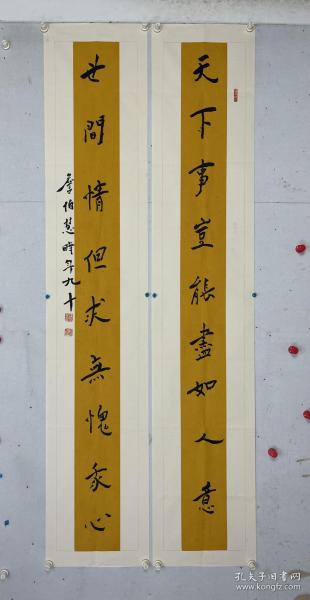 天下事豈能盡如人意
世間情但求無愧我心
詹伯慧時年九十
孔夫子旧书网
kongfz.com